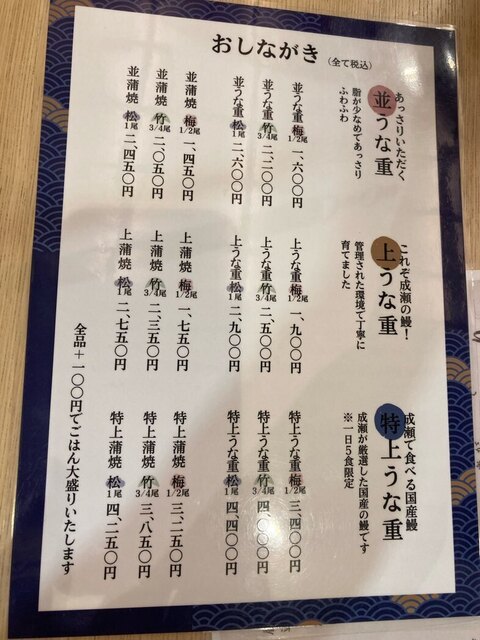 おしながき(全て税込)
あっさりいただく
並うな重
脂が少なめであっさり
ふわふわ
並うな重 梅 1/2尾 一、六〇〇円
並うな重 竹 3/4尾 二、二〇〇円
並うな重 松 1尾 二、六〇〇円
並蒲焼 梅 1/2尾 一、四五〇円
並蒲焼 竹 3/4尾 二、〇五〇円
並蒲焼 松 1尾 二、四五〇円
これぞ成瀬の鰻!
上うな重
管理された環境で丁寧に
育てました
上うな重 梅 1/2尾 一、九〇〇円
上うな重 竹 3/4尾 二、五〇〇円
上うな重 松 1尾 二、九〇〇円
上蒲焼 梅 1/2尾 一、七五〇円
上蒲焼 竹 3/4尾 二、三五〇円
上蒲焼 松 1尾 二、七五〇円
成瀬で食べる国産鰻
特上うな重
成瀬が厳選した国産の鰻です
※一日5食限定
特上うな重 梅 1/2尾 三、四〇〇円
特上うな重 竹 3/4尾 四、〇〇〇円
特上うな重 松 1尾 四、四〇〇円
特上蒲焼 梅 1/2尾 三、二五〇円
特上蒲焼 竹 3/4尾 三、八五〇円
特上蒲焼 松 1尾 四、二五〇円
全品+一〇〇円でごはん大盛りいたします